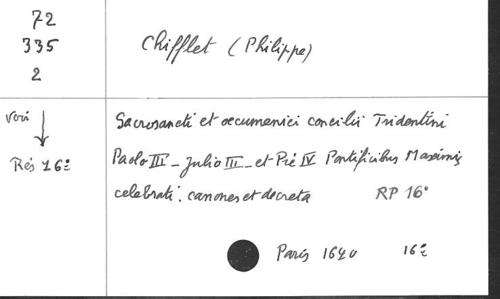 72
335
2
Chifflet (Philippe)
voir
Rés 16º
Sacrosancti et oecumenici concilii Tridentini
Paolo III_ Julio III_ et Pié IV Pontificibus Maximis
celebrati. canones et decreta RP 16º
Paris 1640 16º